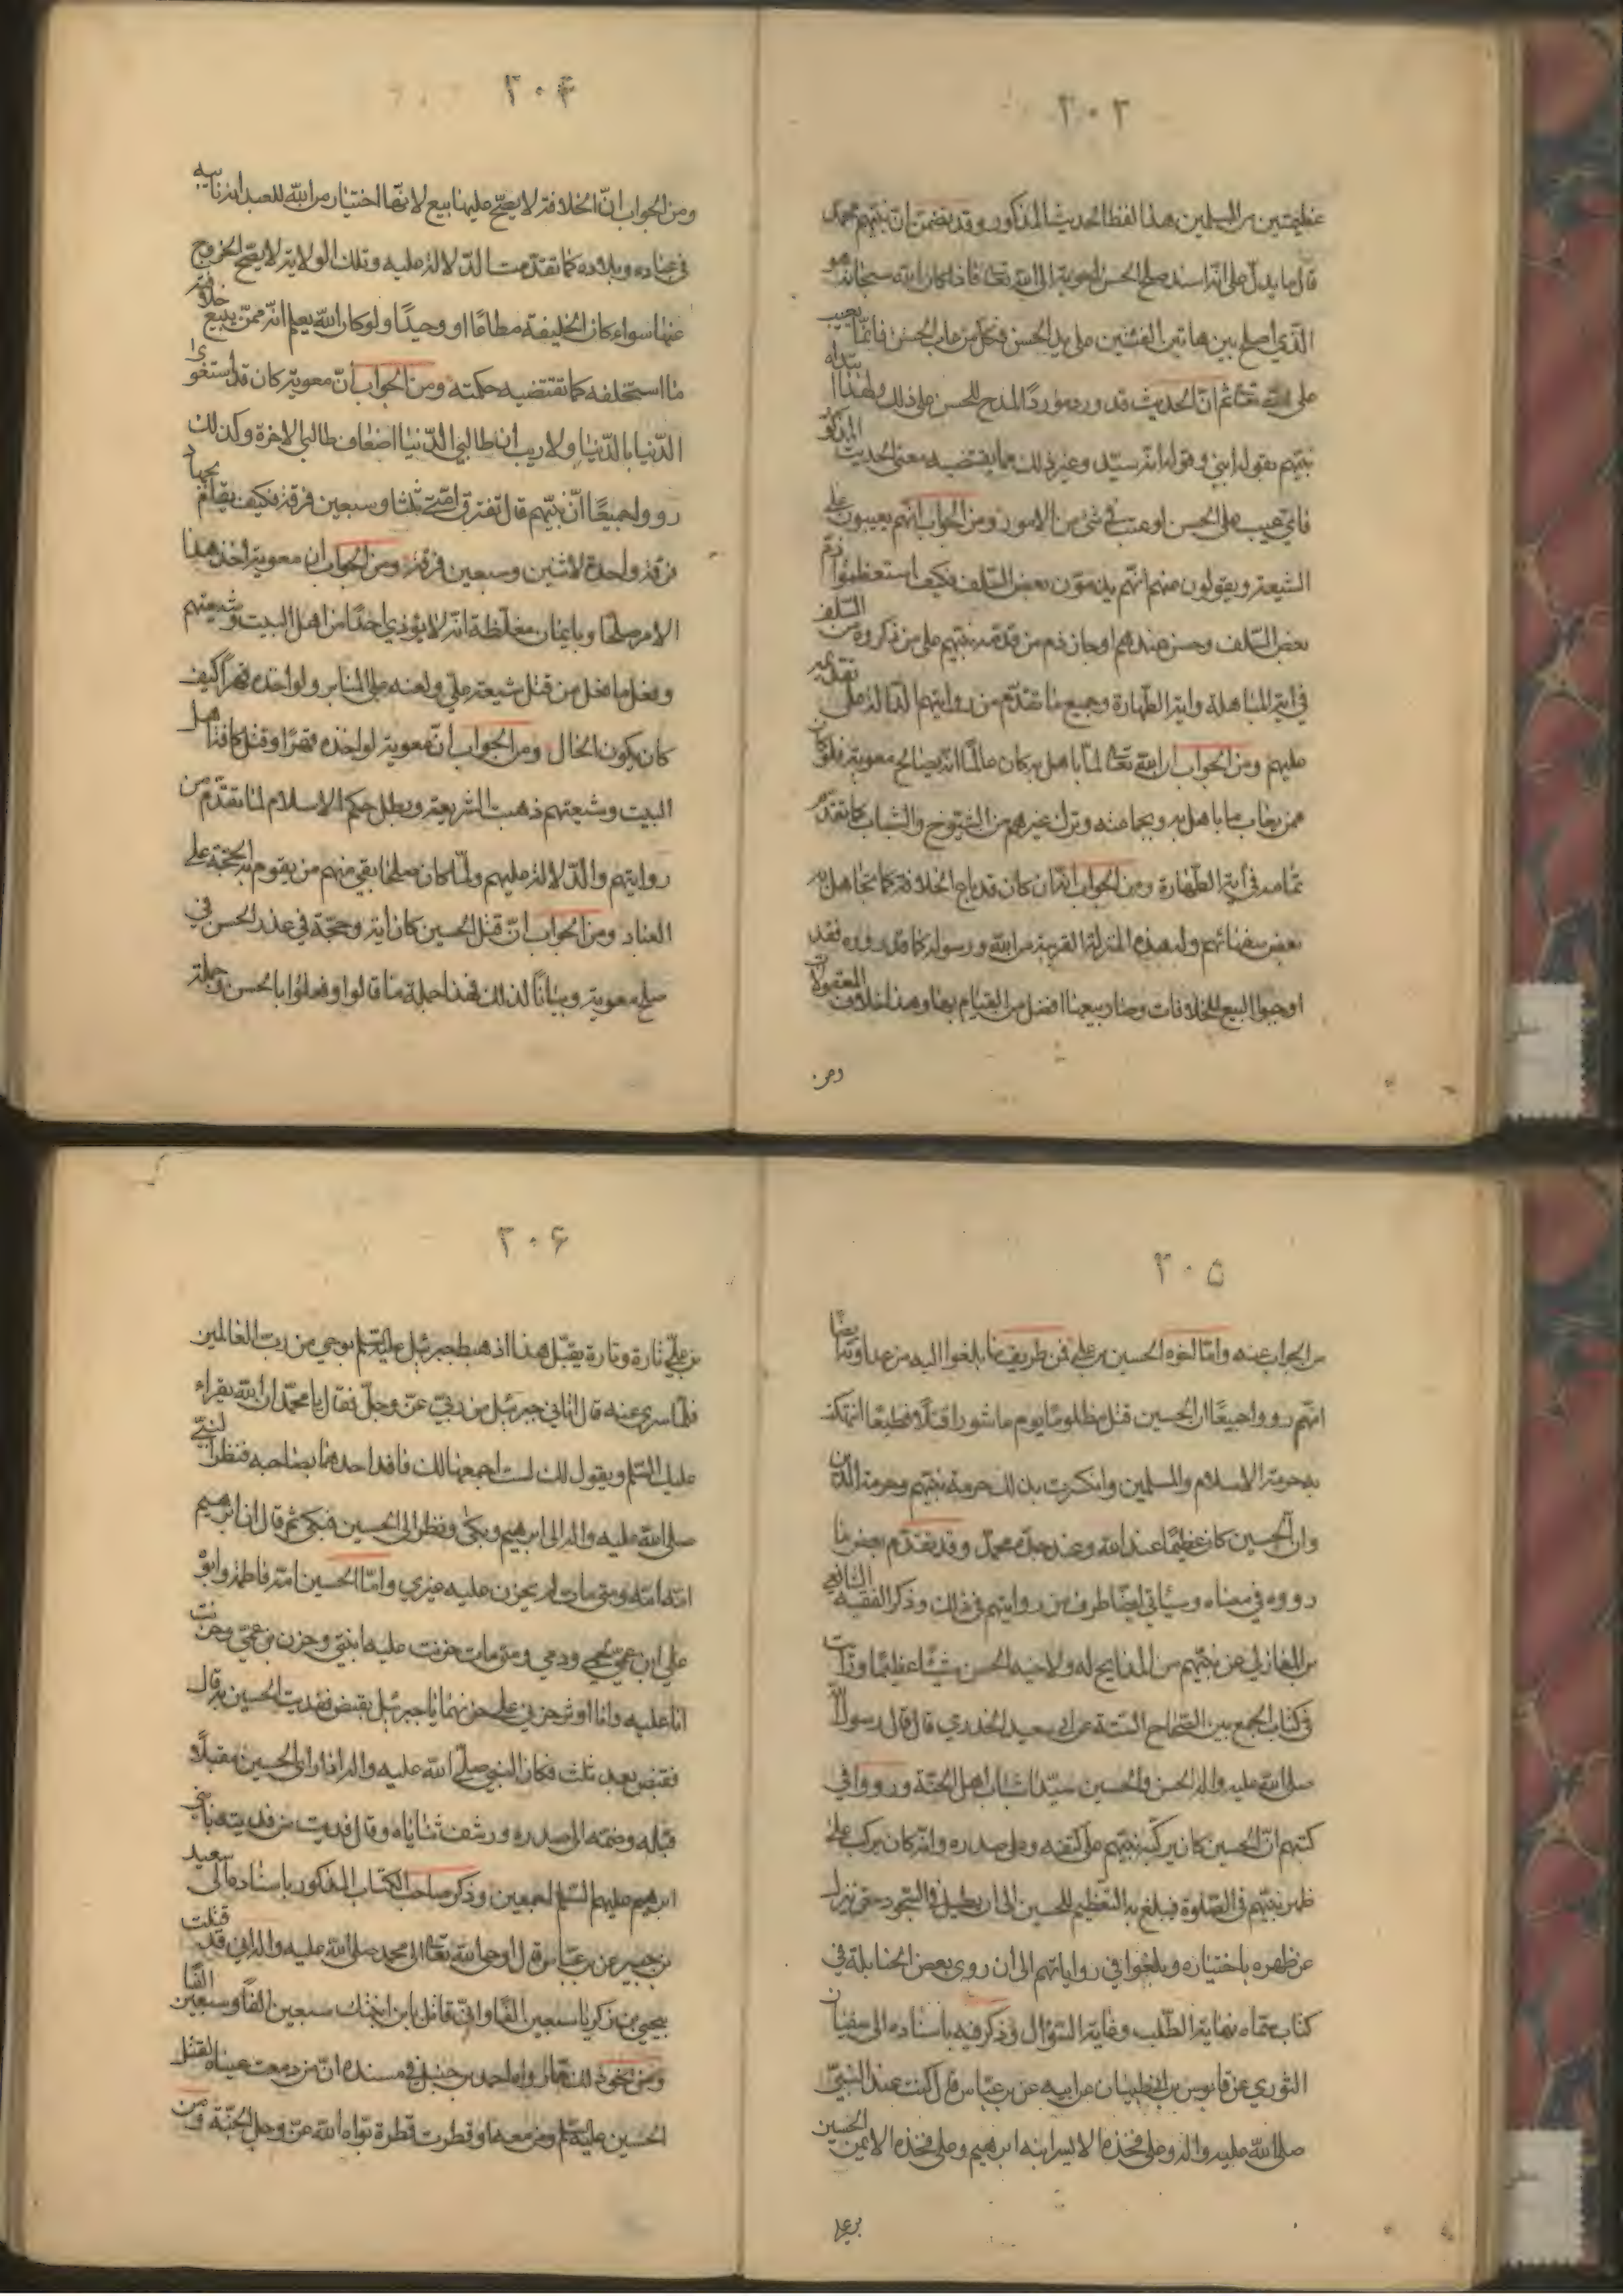 ٢٠٣
عظيمتين من المسلمين هذا لفظ الحديث المذكور وقد تضمن ان نبيهم محمد
قال ما يدل على انه اسند صلح الحسن لمعوية الى الله تعا فاذا كان الله سبحانه هو
الذي اصلح بين هاتين الفئتين على يد الحسن فكل من عاب الحسن فانما يعيب
على الله تعا ثم ان الحديث قد ورد مورد المدح للحسن على ذلك ولهذا ابتداه
نبيهم بقوله ابني وقوله انه سيد وغير ذلك مما يقتضيه معنى الحديث المذكور
فاي عيب على الحسن او عتب في شئ من الامور ومن الجواب انهم يعيبون على
الشيعة ويقولون عنهم انهم يذمون بعض السلف فكيف استعظموا ذم
بعض السلف وحسن عندهم او جاز ذم من قدمه نبيهم على من ذكروه من السلف
في اية المباهلة واية الطهارة وجميع ما تقدم من روايتهم الدالة على تقديمه
عليهم ومن الجواب ان الله تعا لما باهل به كان عالما انه يصالح معوية فلو كان
ممن يعاب ما باهل به وبجماعته وترك غيرهم من الشيوخ والشباب كما تقدم
تمامه في اية الطهارة ومن الجواب انه ان كان قد باع الخلافة كما تجاهل به
بعض سفهائهم وله هذه المنزلة القريبة من الله ورسوله كما قد رووه فقد
اوجبوا البيع للخلافات وصار بيعها افضل من القيام بها وهذا خلاف المعقولات
ومن
٢٠۴
ومن الجواب ان الخلافة لا يصح عليها بيع لانها اختيار من الله للعبد انه نائبه
في عباده وبلاده كما تقدمت الدلالة عليه وتلك الولاية لا يصح الخروج
عنها سواء كان الخليفة مطاعا او وحيدا ولو كان الله يعلم انه ممن يبيع خلافته
ما استخلفه كما تقتضيه حكمته ومن الجواب ان معوية كان قد استغوى
الدنيا بالدنيا ولا ريب ان طالبي الدنيا اضعاف طالبي الاخرة وكذلك
رووا جميعا ان نبيهم قال تفترق امتي ثلثا وسبعين فرقة فكيف يقام بجهاد
فرقة واحدة لاثنين وسبعين فرقة ومن الجواب ان معوية اخذ هذا
الامر صلحا وبايمان مغلظة انه لا يؤذي احدا من اهل البيت وشيعتهم
وفعل ما فعل من قتل شيعة علي ولعنه على المنابر ولو اخذه قهرا كيف
كان يكون الحال ومن الجواب ان معوية لو اخذه قهرا وقتل كافة اهل
البيت وشيعتهم ذهبت الشريعة وبطل حكم الاسلام لما تقدم من
روايتهم والدلالة عليهم ولما كان صلحا بقي منهم من يقوم به الحجة على
العباد ومن الجواب ان قتل الحسين كان اية وحجة في عذر الحسن في
صلح معوية وبيانا لذلك فهذا جملة ما قالوا وفعلوا بالحسن وجملة
٢٠۵
من الجواب عنه واما الغوه الحسين بن علي فمن طريف ما بلغوا اليه من عداوته ايضا
انهم رووا جميعا ان الحسين قتل مظلوما يوم عاشورا قتلا فظيعا انتهكت
به حرمة الاسلام والمسلمين وانكرت بذلك حرمة نبيهم وحرمة الدين
وان الحسين كان عظيما عند الله وعند جده محمد وقد تقدم بعض ما
رووه في معناه وسياتي ايضا طرف من روايتهم في ذلك وذكر الفقيه الشافعي
بن المغازلي عن نبيهم من المدايح له ولاخيه الحسن شيئا عظيما ورايت
في كتاب الجمع بين الصحاح الستة عن ابي سعيد الخدري قال قال رسول الله
صلى الله عليه واله الحسن والحسين سيدا شباب اهل الجنة ورووا في
كتبهم ان الحسين كان يركبه نبيهم على كتفه وعلى صدره وانه كان يركب على
ظهر نبيهم في الصلوة فيبلغ به التعظيم للحسين الى ان يطيل في السجود حتى ينزل
عن ظهره باختياره وبلغوا في رواياتهم الى ان روى بعض الحنابلة في
كتاب سماه نهاية الطلب وغاية السؤال وذكر فيه باسناده الى سفيان
الثوري عن قابوس بن ابي ظبيان عن ابيه عن بن عباس قال كنت عند النبي
صلى الله عليه واله وعلى فخذه الايسر ابنه ابرهيم وعلى فخذه الايمن الحسين
بن علي
٢٠۶
بن علي تارة وتارة يقبل هذا اذ هبط جبرئيل عليه السلم بوحي من رب العالمين
فلما سرى عنه قال اتاني جبرئيل من ربي عز وجل فقال يا محمد ان الله يقراء
عليك السلم ويقول لك لست اجمعهما لك فافد احدهما بصاحبه فنظر النبي
صلى الله عليه واله الى ابرهيم وبكى ونظر الى الحسين فبكى ثم قال ان ابرهيم
امه امة ومتى مات لم يحزن عليه غيري واما الحسين امه فاطمة وابوه
علي ابن عمي لحمي ودمي ومتى مات حزنت عليه ابنتي وحزن بن عمي وحزنت
انا عليه وانا اوثر حزني على حزنهما يا جبرئيل يقبض فقد فديت الحسين به قال
فقبض بعد ثلث فكان النبي صلى الله عليه واله اذا راى الحسين مقبلا
قبله وضمه الى صدره ورشف ثناياه وقال فديت من فديته بابني
ابرهيم عليهم السلم اجمعين وذكر صاحب الكتاب المذكور باسناده الى سعيد
بن جبير عن بن عباس قال اوحى الله تعا الى محمد صلى الله عليه واله اني قد قتلت
بيحيى بن زكريا سبعين الفا واني قاتل بابن ابنتك سبعين الفا وسبعين الفا
ومن نحو ذلك ما رواه احمد بن حنبل في مسنده ان من دمعت عيناه لقتل
الحسين عليه السلم دمعة او قطرت قطرة بواه الله عز وجل الجنة ومن